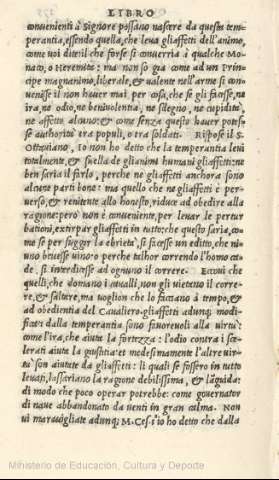 LIBRO
conuenienti à Signore possano nascere da questa tem-
perantia, essendo quella, che leua gliaffetti dell'animo,
come uoi dite: il che forse si conuerria à qualche Mo-
naco, o Heremita: ma non so gia come ad un Prin-
cipe magnanimo, liberale, & ualente nell'arme si con-
uenisse il non hauer mai per cosa, che se gli facesse, ne
ira, ne odio, ne beniuolentia, ne sdegno, ne cupidità,
ne affetto alcuno: & come senza questo hauer potes-
se authorità tra populi, o tra soldati. Rispose il S.
Ottauiano, Io non ho detto che la temperantia leui
totalmente, & suella de gli animi humani gliaffetti: ne
ben saria il farlo, perche ne gliaffetti anchora sono
alcune parti bone: ma quello che ne gliaffetti è per-
uerso, & renitente allo honesto, riduce ad obedire alla
ragione: però non è conueniente, per leuar le pertur
bationi, extirpar gliaffetti in tutto: che questo saria, co-
me se per fuggir la ebrietà, si facesse un editto, che ni-
uno beuesse uino: o perche talhor correndo l'homo ca-
de, si interdicesse ad ognuno il correre. Eccoui che
quelli, che domano i caualli, non gli uietano il corre-
re, & saltare, ma uoglion che lo facciano à tempo, &
ad obedientia del Caualiero. gliaffetti adunq; modi-
ficati dalla temperantia sono fauoreuoli alla uirtù:
come l'ira, che aiuta la fortezza: l'odio contra i sce-
lerati aiuta la giustitia: et medesimamente l'altre uir-
tù son aiutate da gliaffetti: li quali se fossero in tutto
leuati, lassariano la ragione debilissima, & languida:
di modo che poco operar potrebbe: come gouernator
di naue abbandonato da uenti in gran calma. Non
ui marauigliate adunq; M. Ces. s'io ho detto che dalla
Ministerio de Educación, Cultura y Deporte